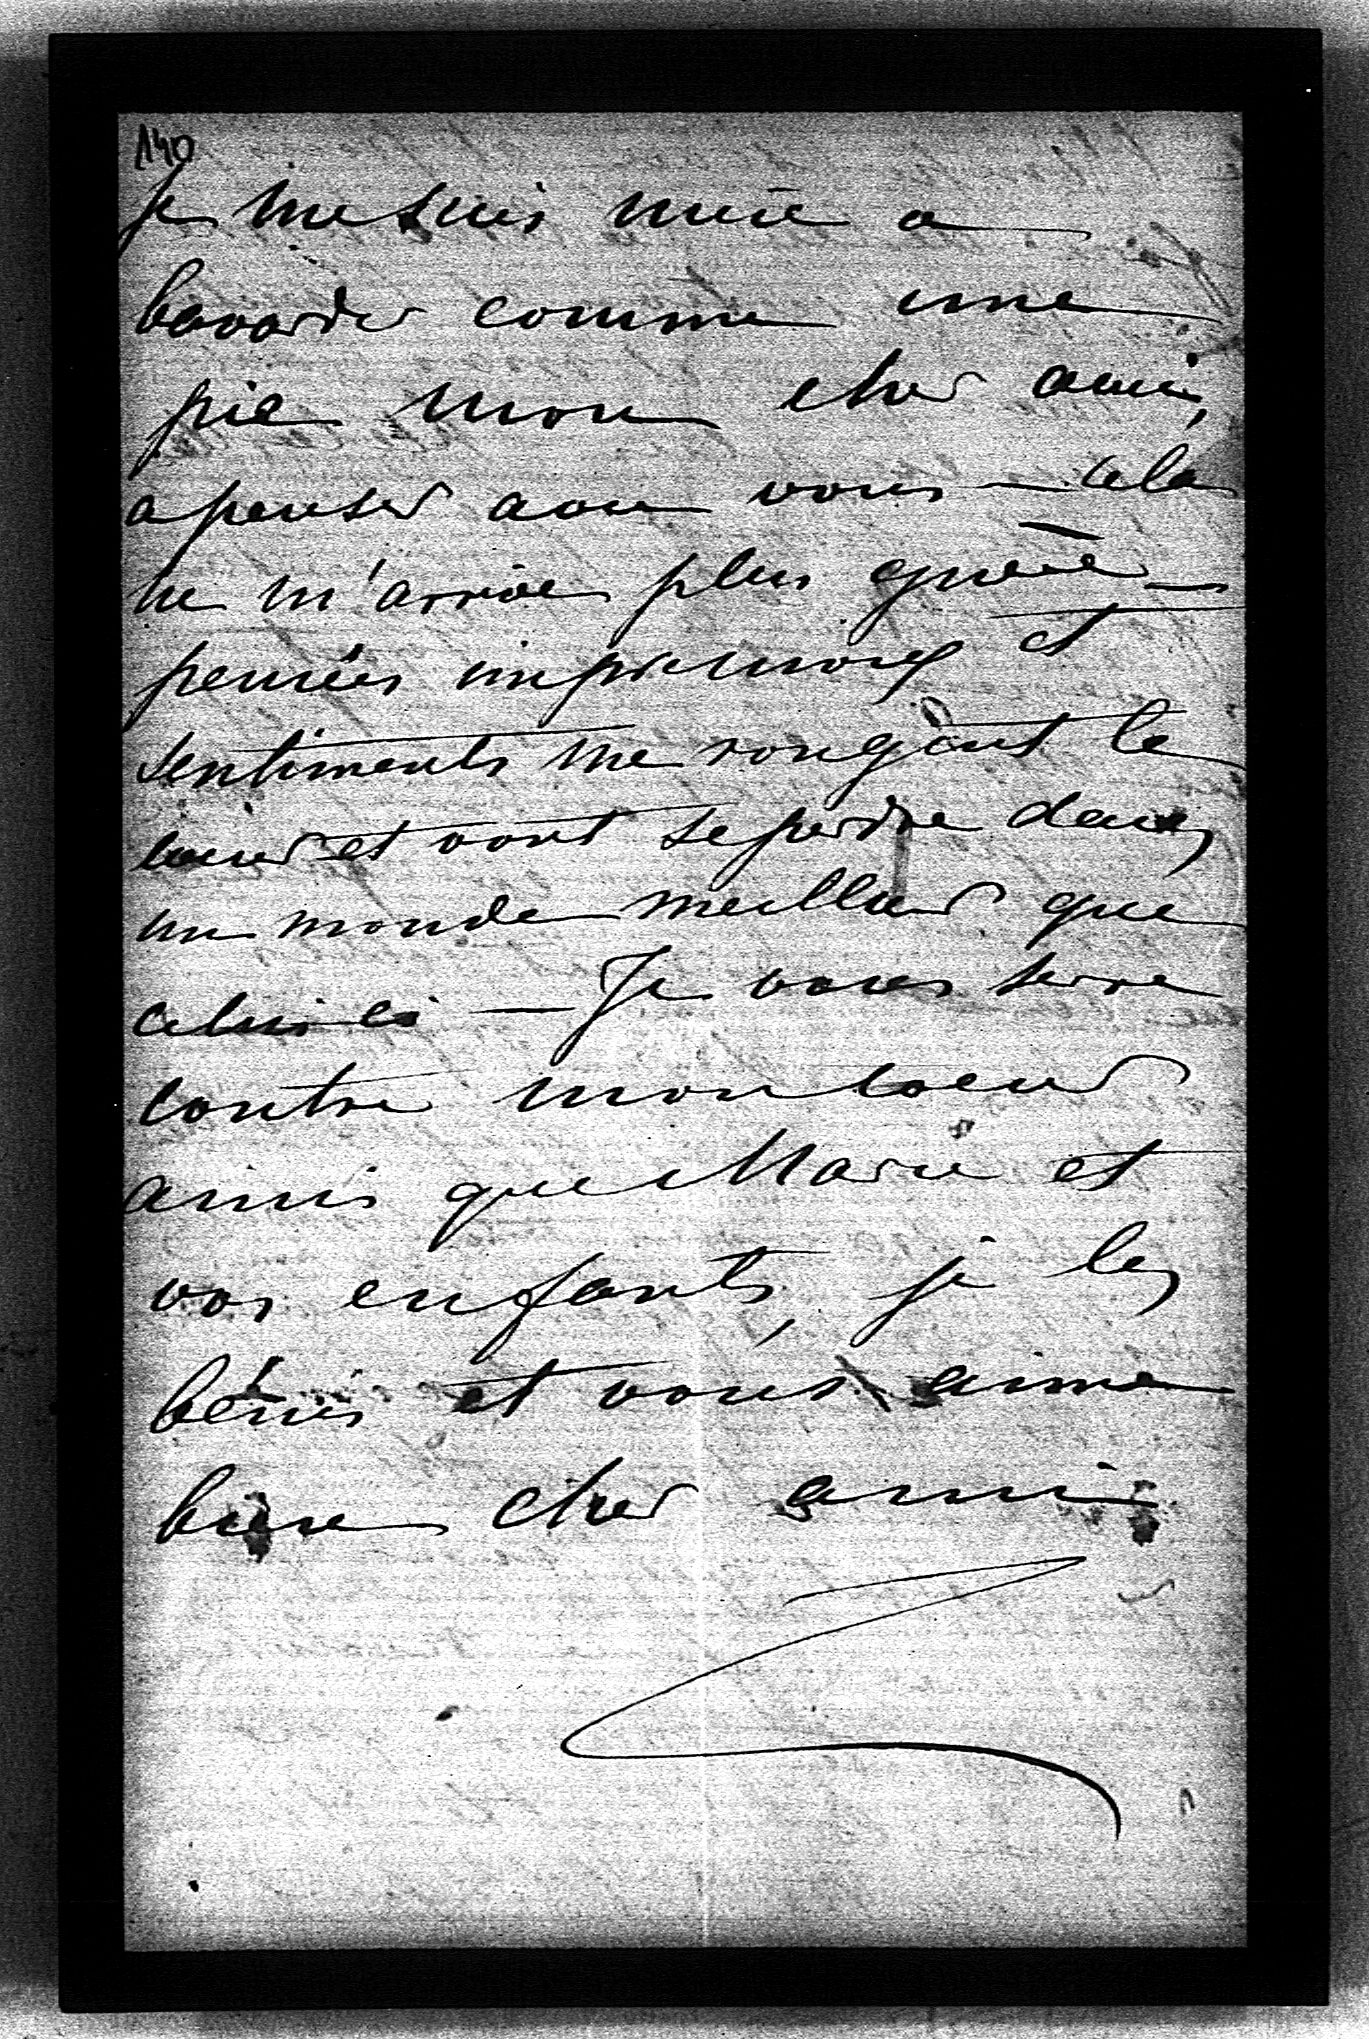 140
Je me suis mise a
bavarder comme une
pie mon cher ami,
a penser avec vous — cela
ne m'arrive plus guère —
pensées impressions et
sentiments me rongent le
coeur et vont se perdre dans
un monde meilleur que
celui-ci — Je vous serre
contre mon coeur
ainsi que Marie et
vos enfants, je les
bénis et vous aime
bien cher ami